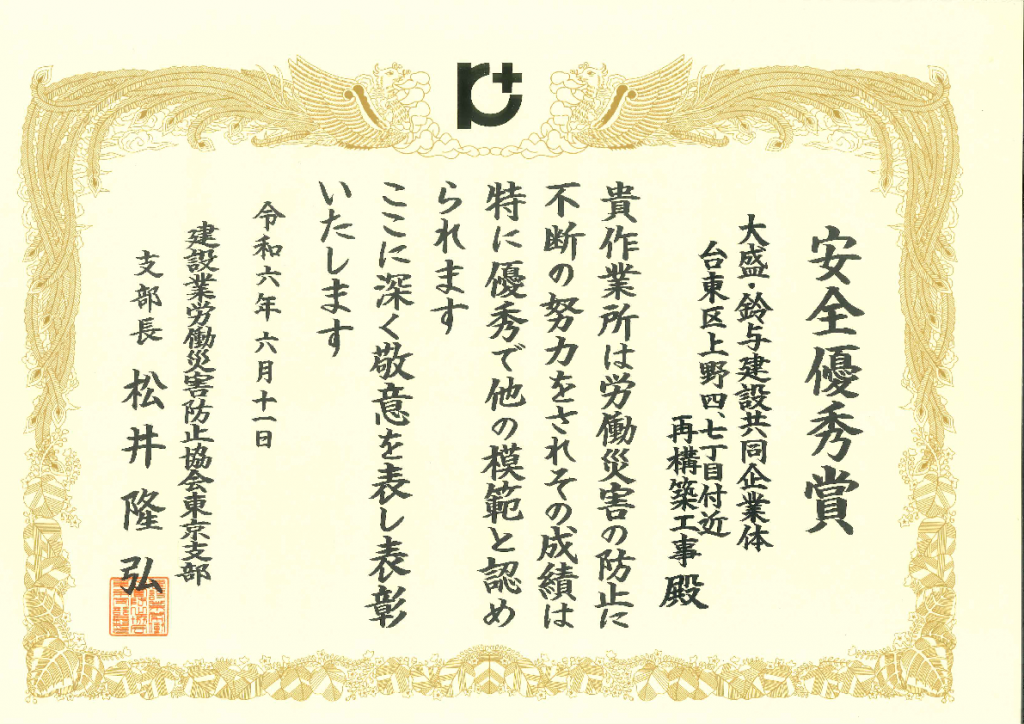 安全優秀賞
大盛・鈴与建設共同企業体
台東区上野四、七丁目付近
再構築工事 殿
貴作業所は労働災害の防止に
不断の努力をされその成績は
特に優秀で他の模範と認め
られます
ここに深く敬意を表し表彰
いたします
令和六年六月十一日
建設業労働災害防止協会東京支部
支部長 松井隆弘